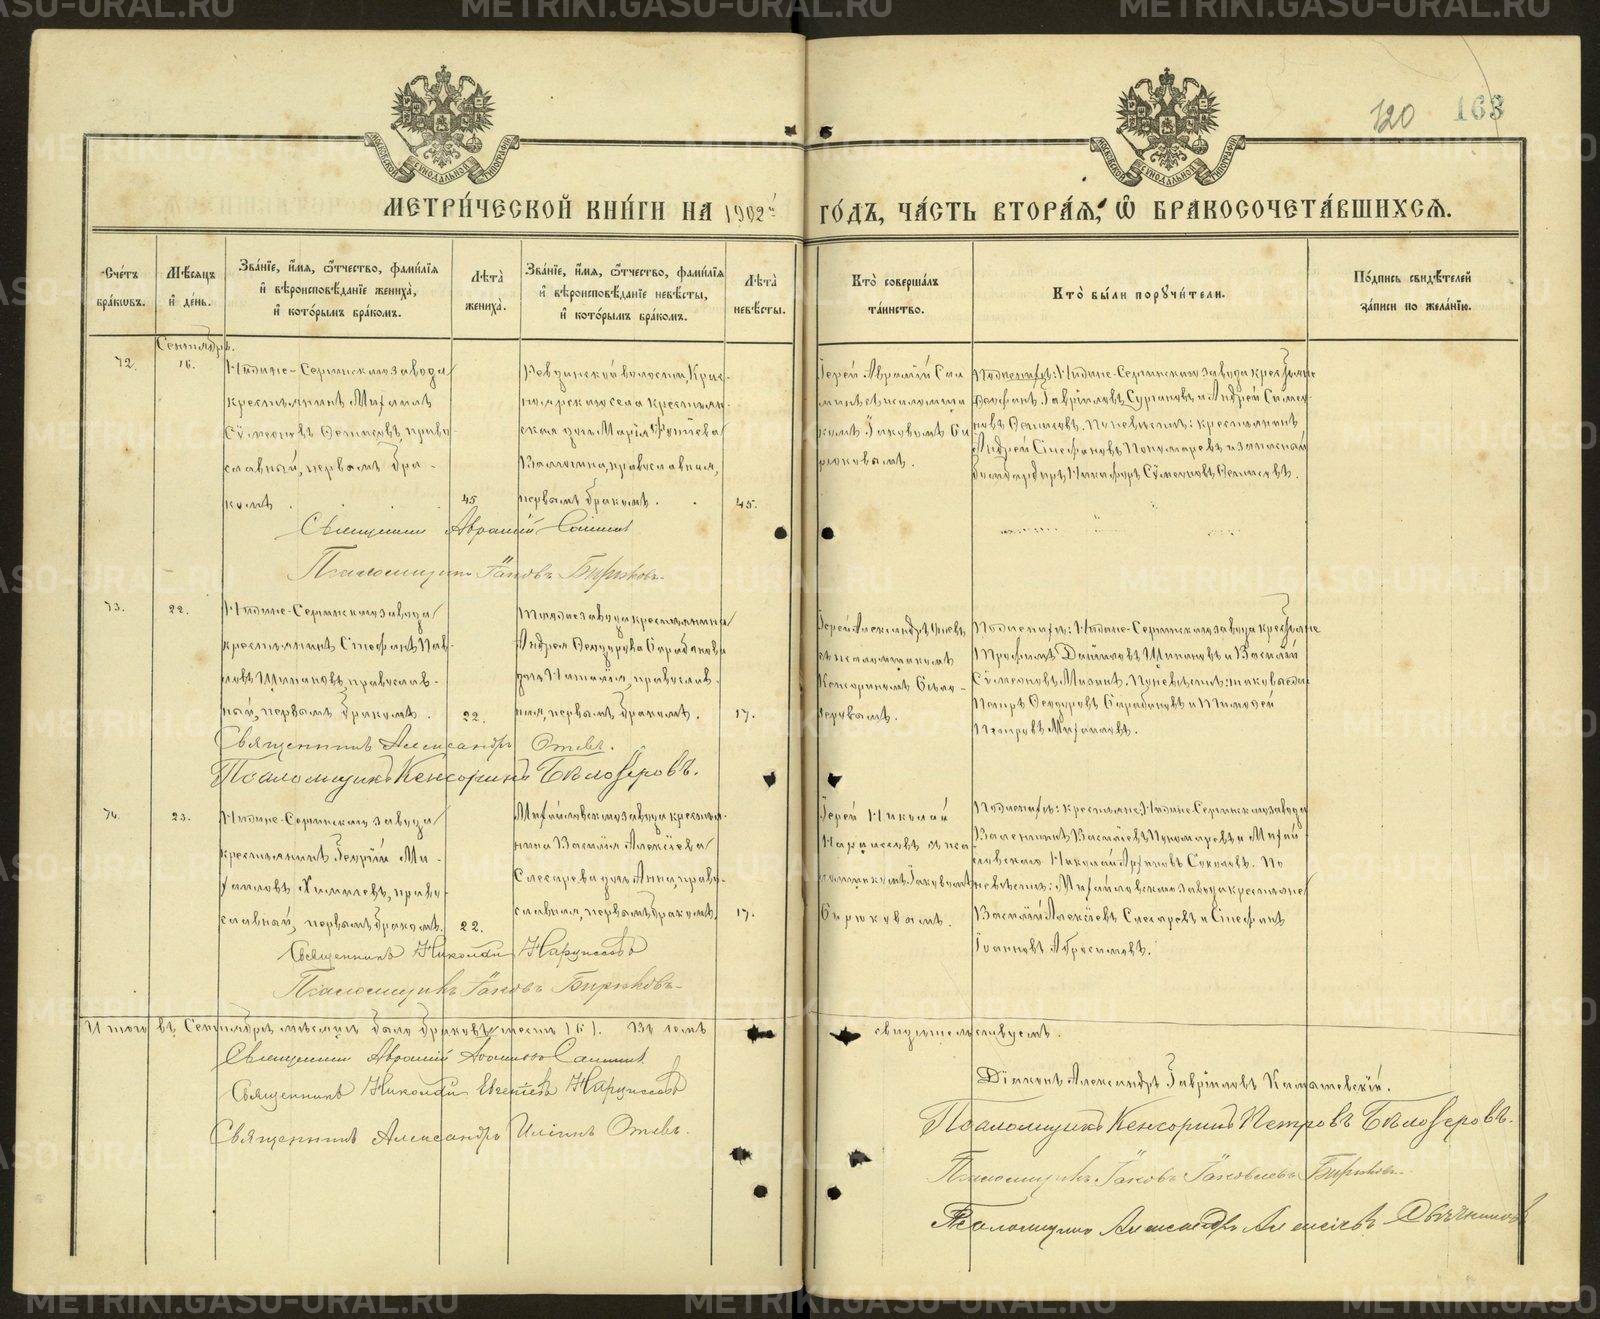 METRIKI.GASO-URAL.RU
120 163
МОСКОВСКОЙ СУНОДАЛЬНОЙ ТИПОГРАФІИ
МОСКОВСКОЙ СУНОДАЛЬНОЙ ТИПОГРАФІИ
МЕТРИ́ЧЕСКОЙ КНИ́ГИ НА 1902й ГО́ДЪ, ЧА́СТЬ ВТОРА́Я, Ѽ БРАКОСОЧЕТА́ВШИХСЯ.
Сче́тъ бра́кωвъ.
Мѣ́сяцъ и҆ де́нь.
Зва́нїе, и҆́мя, ѻ҆́тчество, фами́лїя и҆ вѣроисповѣ́данїе жениха̀, и҆ кото́рымъ бра́комъ.
Лѣта̀ жениха̀.
Зва́нїе, и҆́мя, ѻ҆́тчество, фами́лїя и҆ вѣроисповѣ́данїе невѣ́сты, и҆ кото́рымъ бра́комъ.
Лѣта̀ невѣ́сты.
Кто̀ соверша́лъ та́инство.
Кто̀ бы́ли порꙋчи́тели.
По́дпись свидѣ́телей за́писи по жела́нїю.
Сентябрь.
72.
16.
Нижне-Сергинскаго завода
крестьянинъ Михаилъ
Сѵмеоновъ Ѳелисовъ, право-
славный, первымъ бра-
комъ.
45
Ревдинской волости, Крас-
ноярскаго села крестьян-
ская дочь Марія Фотіева
православная,
первымъ бракомъ.
45.
Іерей Аврамій Са
съ псаломщи
комъ Іаковомъ Би
рюковымъ.
По женихѣ: Нижне-Сергинскаго завода крестьяне
Гавріиловъ и Андрей Сѵмео-
новъ Ѳелисовъ. По невѣстѣ: крестьянинъ
Андрей Стефановъ Пономаревъ и запасный
бомбардиръ Никифоръ Сѵмеоновъ Ѳелисовъ.
Священникъ Аврамій
Псаломщикъ Іаковъ Бирюковъ
73.
22.
Нижне-Сергинскаго завода
крестьянинъ Стефанъ Пав-
ловъ Щипановъ, православ-
ный, первымъ бракомъ.
22.
Того же завода крестьянина
Андрея Ѳеодорова Барабанова
дочь Наталія, православ-
ная, первымъ бракомъ.
17.
Іерей Александръ Отевъ
съ псаломщикомъ
Кенсориномъ Бѣло-
зеровымъ.
По женихѣ: Нижне-Сергинскаго завода крестьяне
Трофимъ Даніиловъ Щипановъ и Василій
Сѵмеоновъ Мизинъ. По невѣстѣ: таковые же
Петръ Ѳеодоровъ Барабановъ и Тимофей
Петровъ Михайловъ.
Священникъ Александръ Отевъ.
Псаломщикъ Кенсоринъ Бѣлозеровъ.
74.
23.
Нижне-Сергинскаго завода
крестьянинъ Георгій Ми-
хаиловъ Хмелевъ, право-
славный, первымъ бракомъ.
22.
Михайловскаго завода крестья-
нина Василія Алексіева
Слесарева дочь Анна, право-
славная, первымъ бракомъ.
17.
Іерей Николай
Нарциссовъ съ пса
ломщикомъ Іаковомъ
Бирюковымъ.
По женихѣ: крестьяне Нижне-Сергинскаго завода
Валентинъ Василіевъ Пономаревъ и Михай
ловскаго Николай Соколовъ. По
невѣстѣ: Михайловскаго завода крестьяне
Василій Алексіевъ Слесаревъ и Стефанъ
Іоанновъ Абросимовъ.
Священникъ Николай Нарциссовъ
Псаломщикъ Іаковъ Бирюковъ
Итого въ Сентябрѣ мѣсяцѣ было браковъ шесть (6). Въ томъ свидѣтельствуемъ.
Священникъ Аврамій
Священникъ Николай Евгеніевъ Нарциссовъ
Священникъ Александръ Иліинъ Отевъ.
Діаконъ Александръ Гавріиловъ
Псаломщикъ Кенсоринъ Петровъ Бѣлозеровъ.
Псаломщикъ Іаковъ Іаковлевъ Бирюковъ
Псаломщикъ Александръ Алексіевъ